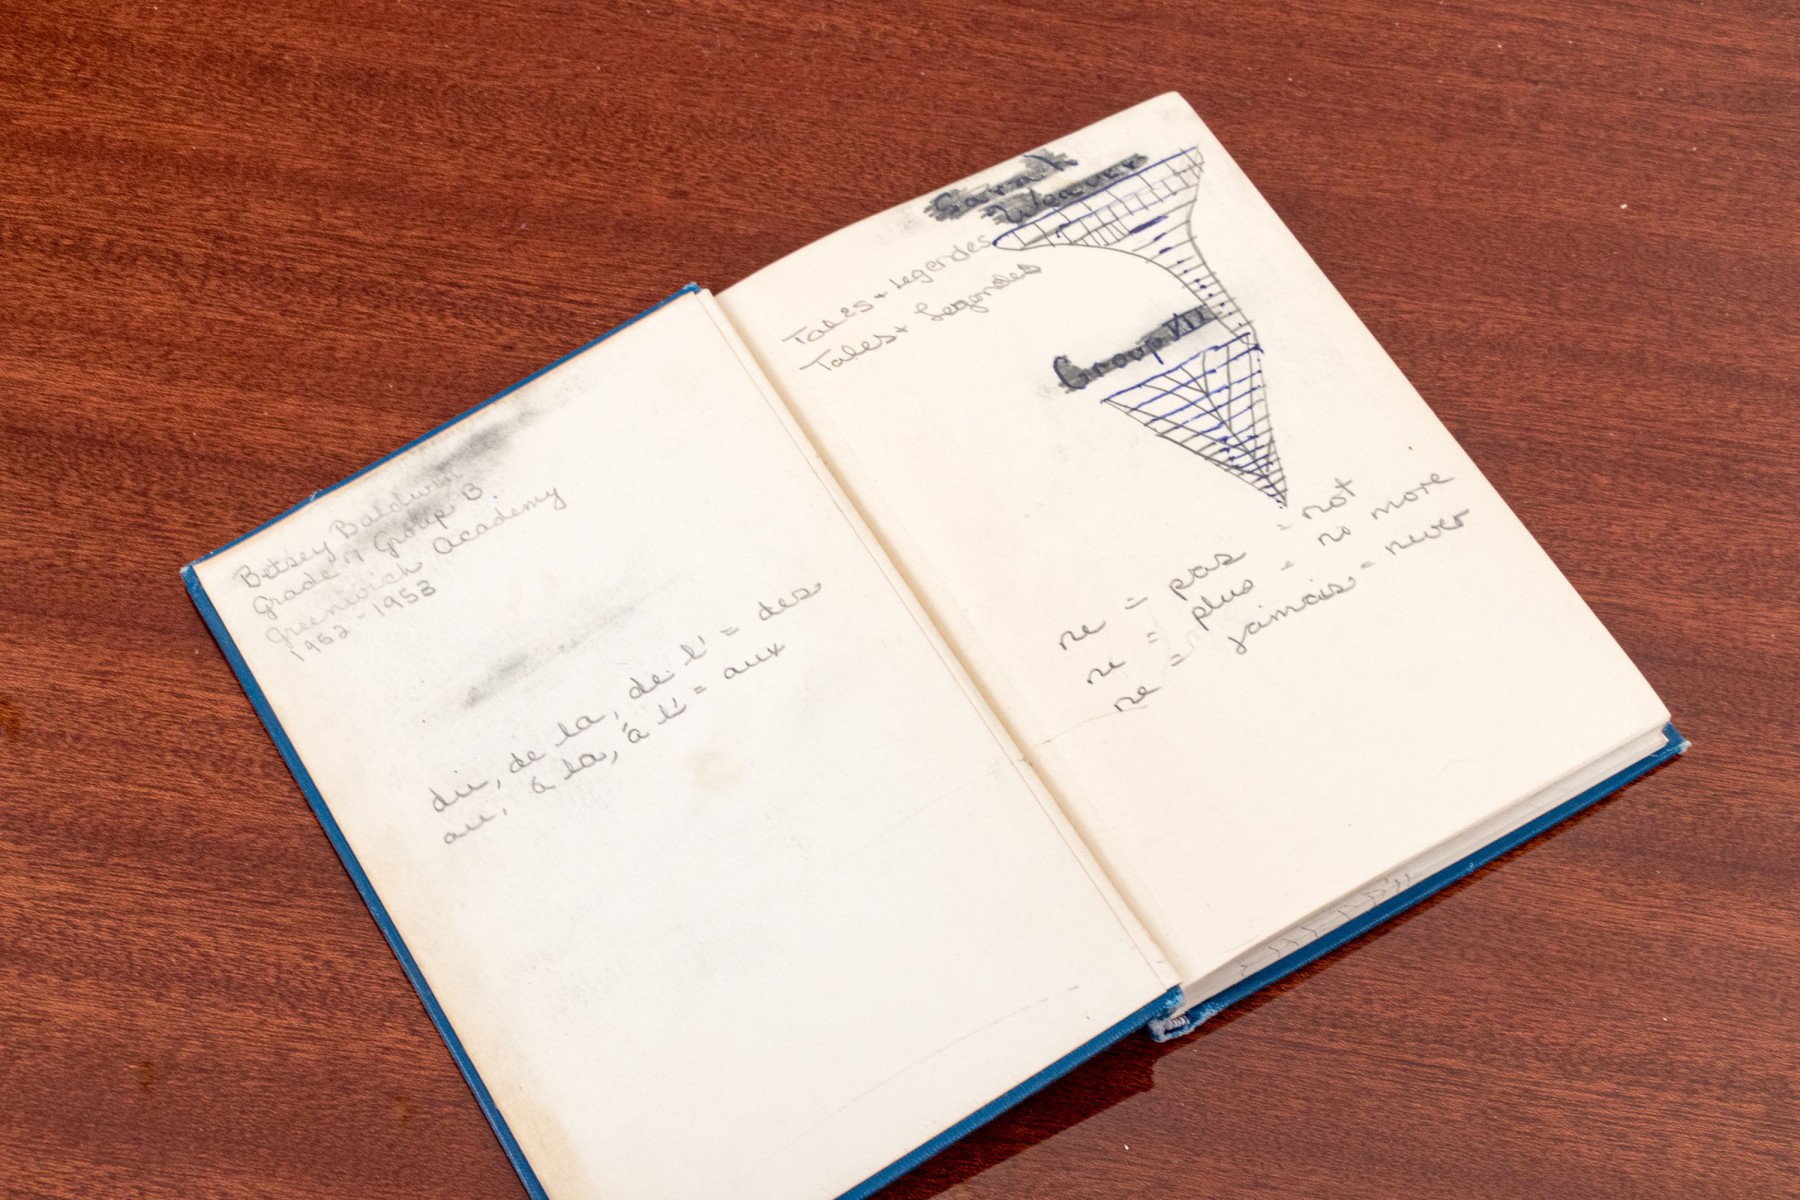 Betsey Baldwin
Grade 7 Group B.
Greenwich Academy
1952-1953
du, de la, de l' = des
au, á la, á l' = aux
Sarah
Weaver
Tales + Legendes
Tales + Legendes
Group VII
ne = pas = not
ne = plus = no more
ne = jamais = never